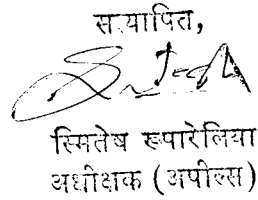 सत्यापित,
स्मितेष रूपारेलिया
अधीक्षक (अपील्स)